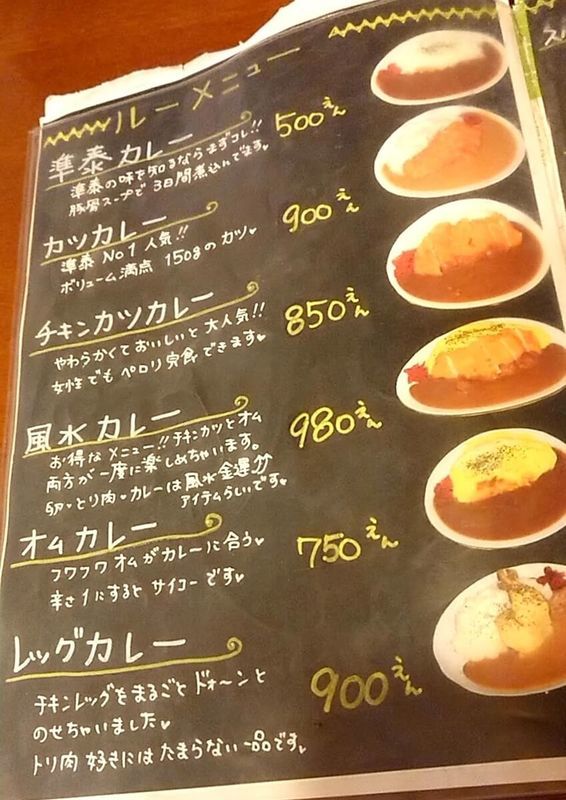 ルーメニュー
準泰カレー 500えん
準泰の味を知るならまずコレ!!
豚骨スープで3日間煮込んでます♥
カツカレー 900えん
準泰No1人気!!
ボリューム満点 150gのカツ♥
チキンカツカレー 850えん
やわらかくておいしいと大人気!!
女性でもペロリ完食できます♥
風水カレー 980えん
お得なメニュー!!チキンカツとオム
両方が一度に楽しめちゃいます。
卵・とり肉・カレーは風水金運⤴
アイテムらしいです♥
オムカレー 750えん
フワフワオムがカレーに合う♥
辛さ1にするとサイコーです♥
レッグカレー 900えん
チキンレッグをまるごとドォ〜ンと
のせちゃいました♥
トリ肉好きにはたまらない一品です♥